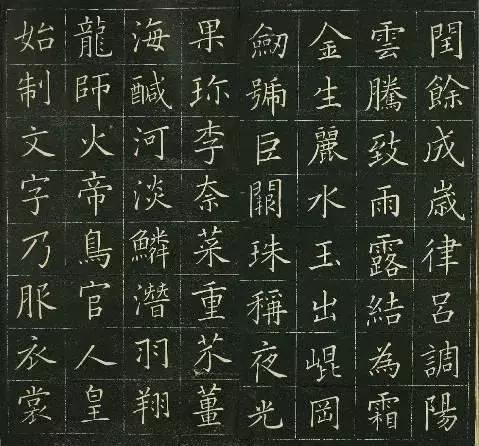 閏餘成歲律呂調陽
雲騰致雨露結為霜
金生麗水玉出崐岡
劒號巨闕珠稱夜光
果珎李柰菜重芥薑
海鹹河淡鱗潛羽翔
龍師火帝鳥官人皇
始制文字乃服衣裳